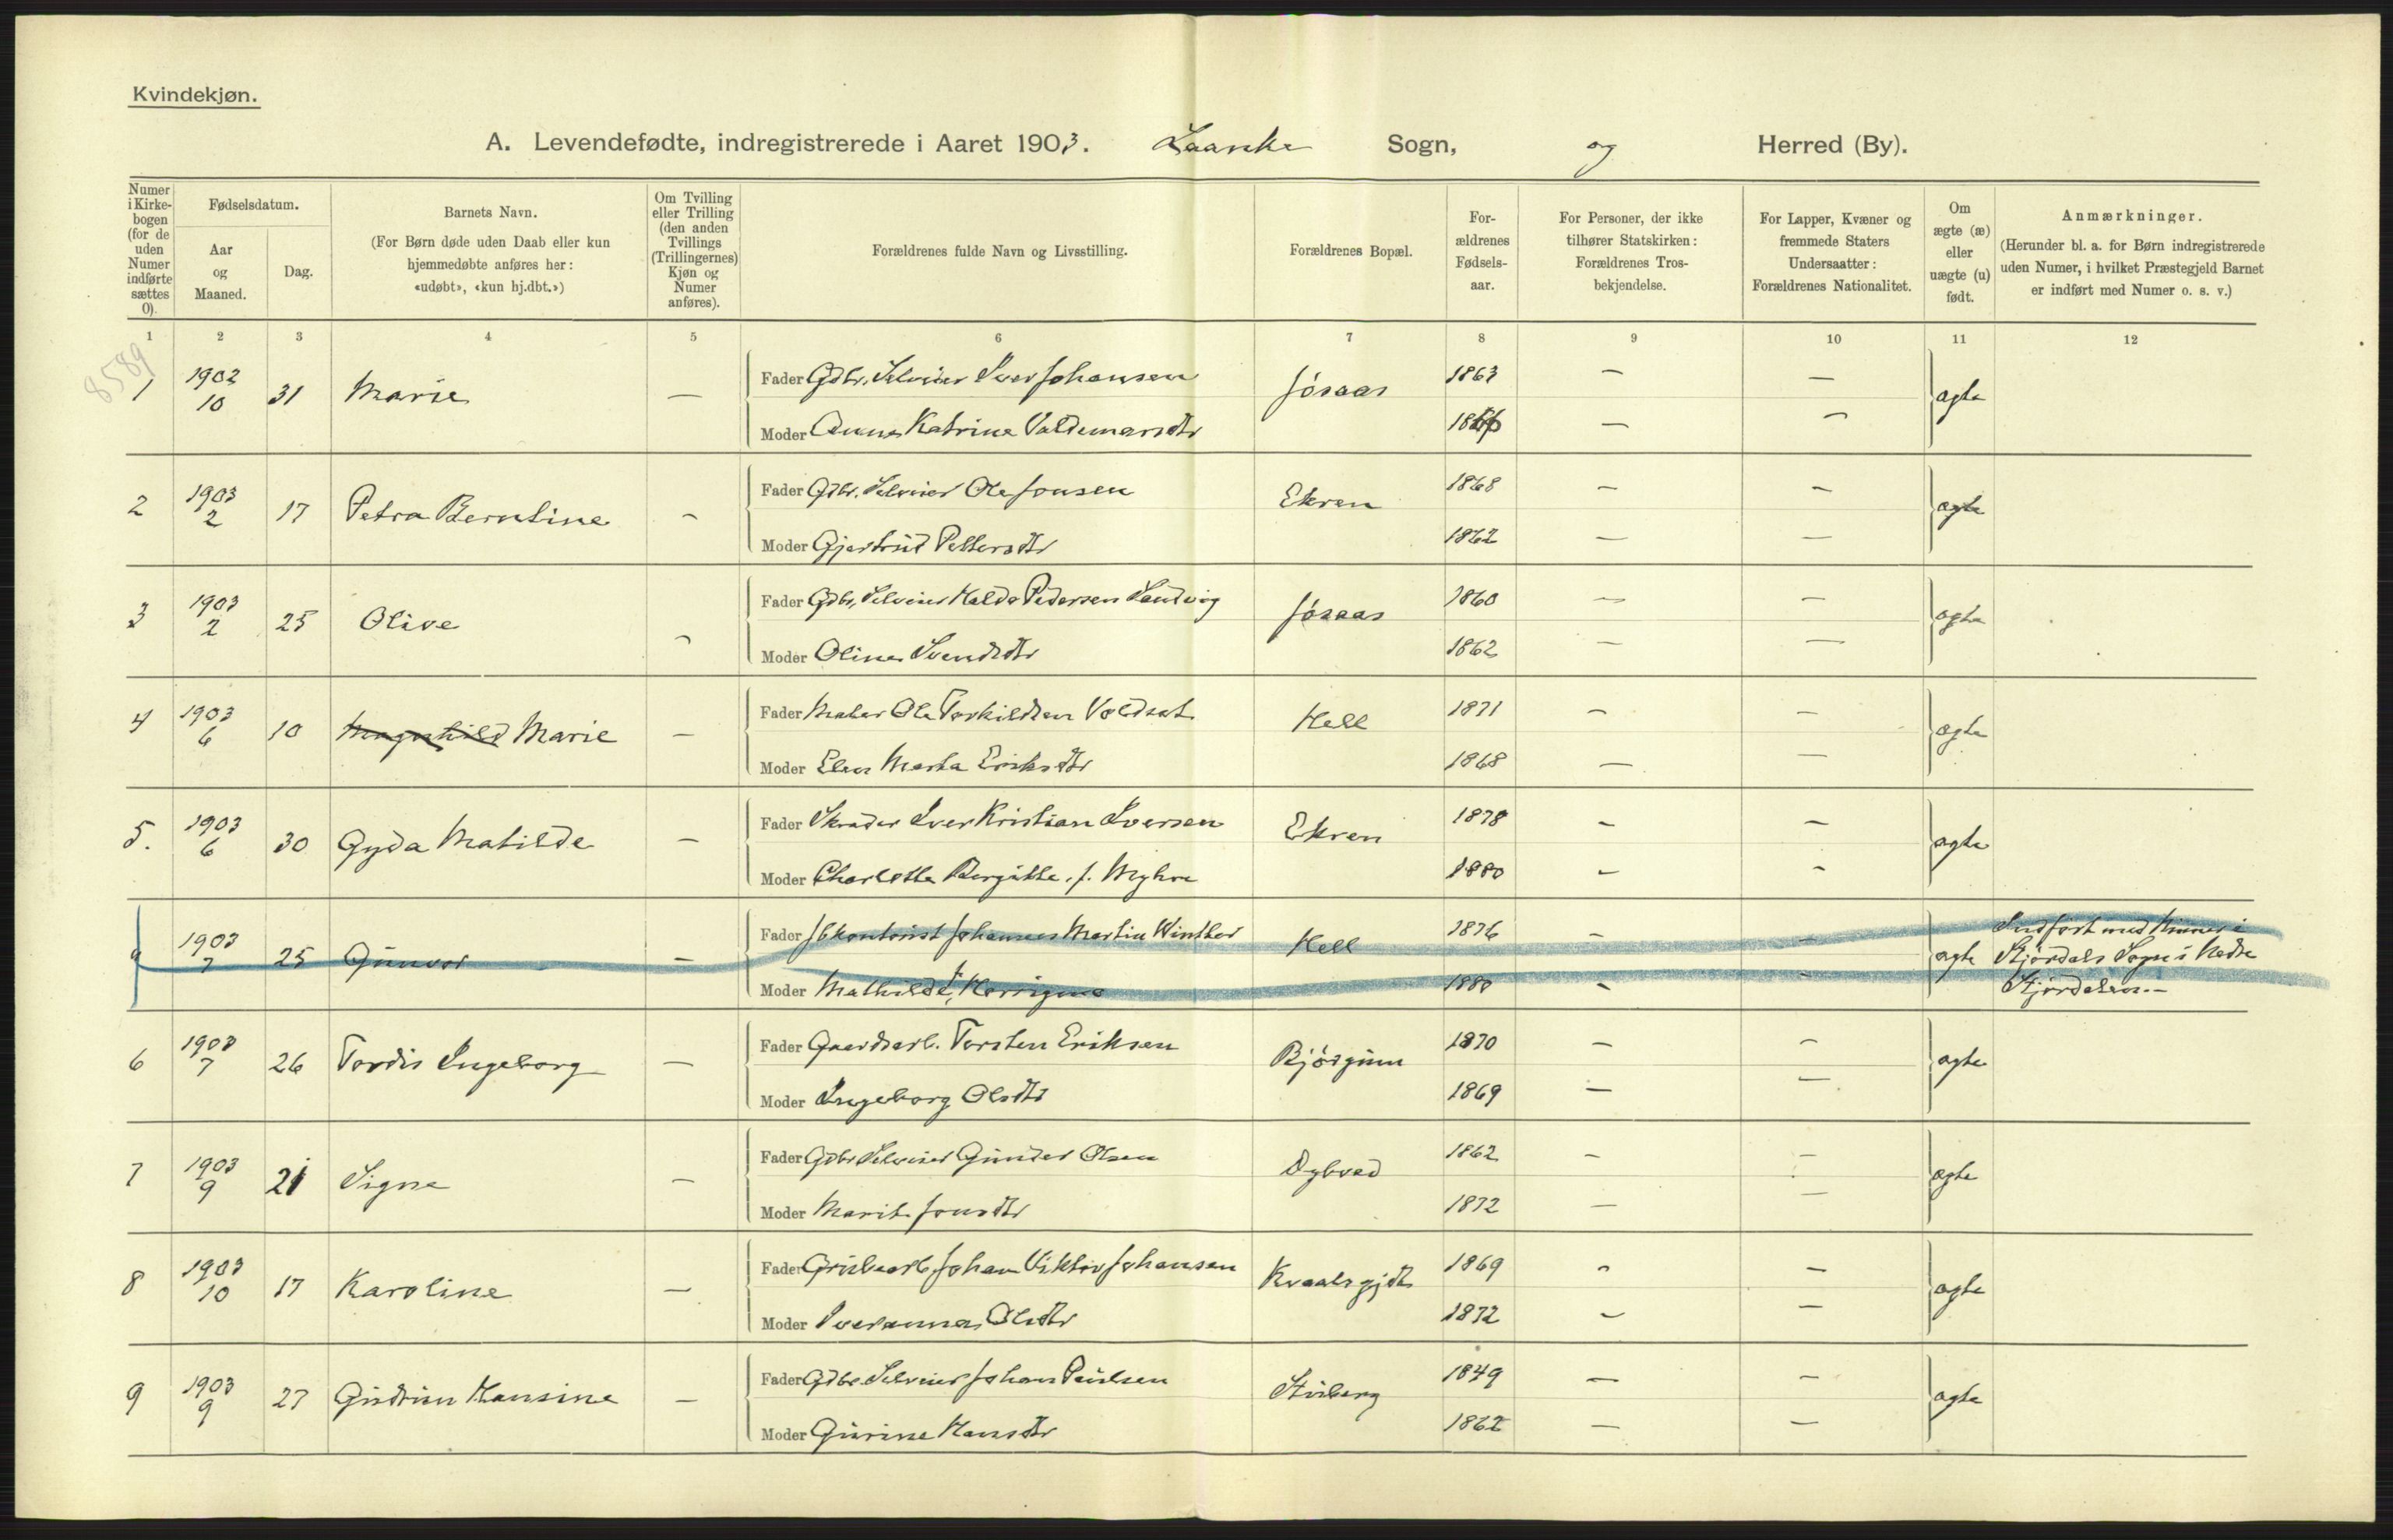 Kvindekjøn.
A. Levendefødte, indregistrerede i Aaret 1903. Laanke Sogn, og Herred (By).
Numer i Kirkebogen (for de uden Numer indførte sættes 0).
Fødselsdatum.
Aar og Maaned.
Dag.
Barnets Navn.
(For Børn døde uden Daab eller kun hjemmedøbte anføres her: «udøbt», «kun hj.dbt.»)
Om Tvilling eller Trilling (den anden Tvillings (Trillingernes) Kjøn og Numer anføres).
Forældrenes fulde Navn og Livsstilling.
Forældrenes Bopæl.
For-ældrenes Fødsels-aar.
For Personer, der ikke tilhører Statskirken: Forældrenes Tros-bekjendelse.
For Lapper, Kvæner og fremmede Staters Undersaatter: Forældrenes Nationalitet.
Om ægte (æ) eller uægte (u) født.
Anmærkninger.
(Herunder bl. a. for Børn indregistrerede uden Numer, i hvilket Præstegjeld Barnet er indført med Numer o. s. v.)
1 2 3 4 5 6 7 8 9 10 11 12
8589
1 1902 10 31 Marie — Fader Gdbr. Selveier Iver Johansen Jøsaas 1863 — — ægte
Moder Anna Katrine Valdemarsdtr — —
2 1903 2 17 Petra Berntine — Fader Gdbr. Selveier Ole Jonsen Ekren 1868 — — ægte
Moder Gjertrud Pettersdtr 1862 — —
3 1903 2 25 Olive — Fader Gdbr. Selveier Haldo Pedersen Sandvig Jøsaas 1860 — — ægte
Moder Oline Svendsdtr 1862 — —
4 1903 6 10 Magnhild Marie — Fader Maler Ole Torkildsen Voldset Hell 1871 — — ægte
Moder Elen Marta Eriksdtr 1868 — —
5. 1903 6 30 Gyda Matilde — Fader Skræder Iver Kristian Iversen Ekren 1878 — — ægte
Moder Charlotte Bergitte f. Myhre 1880 — —
1903 7 25 Gunvor — Fader Jbkontorist Johannes Martin Winther Hell 1876 — — ægte Indført med Numer i
Stjørdals Sogn i Nedre
Moder Mathilde f. 1880 — — Stjørdalen.—
6 1903 7 26 Tordis Ingeborg — Fader Gaardarb. Torsten Eriksen Bjørgum 1870 — — ægte
Moder Ingeborg Olsdtr 1869 — —
7 1903 9 21 Signe — Fader Gdbr Selveier Gunder Olsen Dybvad 1862 — — ægte
Moder Marit Jonsdtr 1872 — —
8 1903 10 17 Karoline — Fader Grubearb. Johan Viktor Johansen Kvaalsgjdt 1869 — — ægte
Moder Iveranna Olsdtr 1872 — —
9 1903 9 27 Gudrun Hansine — Fader Gdbr. Selveier Johan Paulsen Stuberg 1849 — — ægte
Moder Gurine Hansdtr 1862 — —